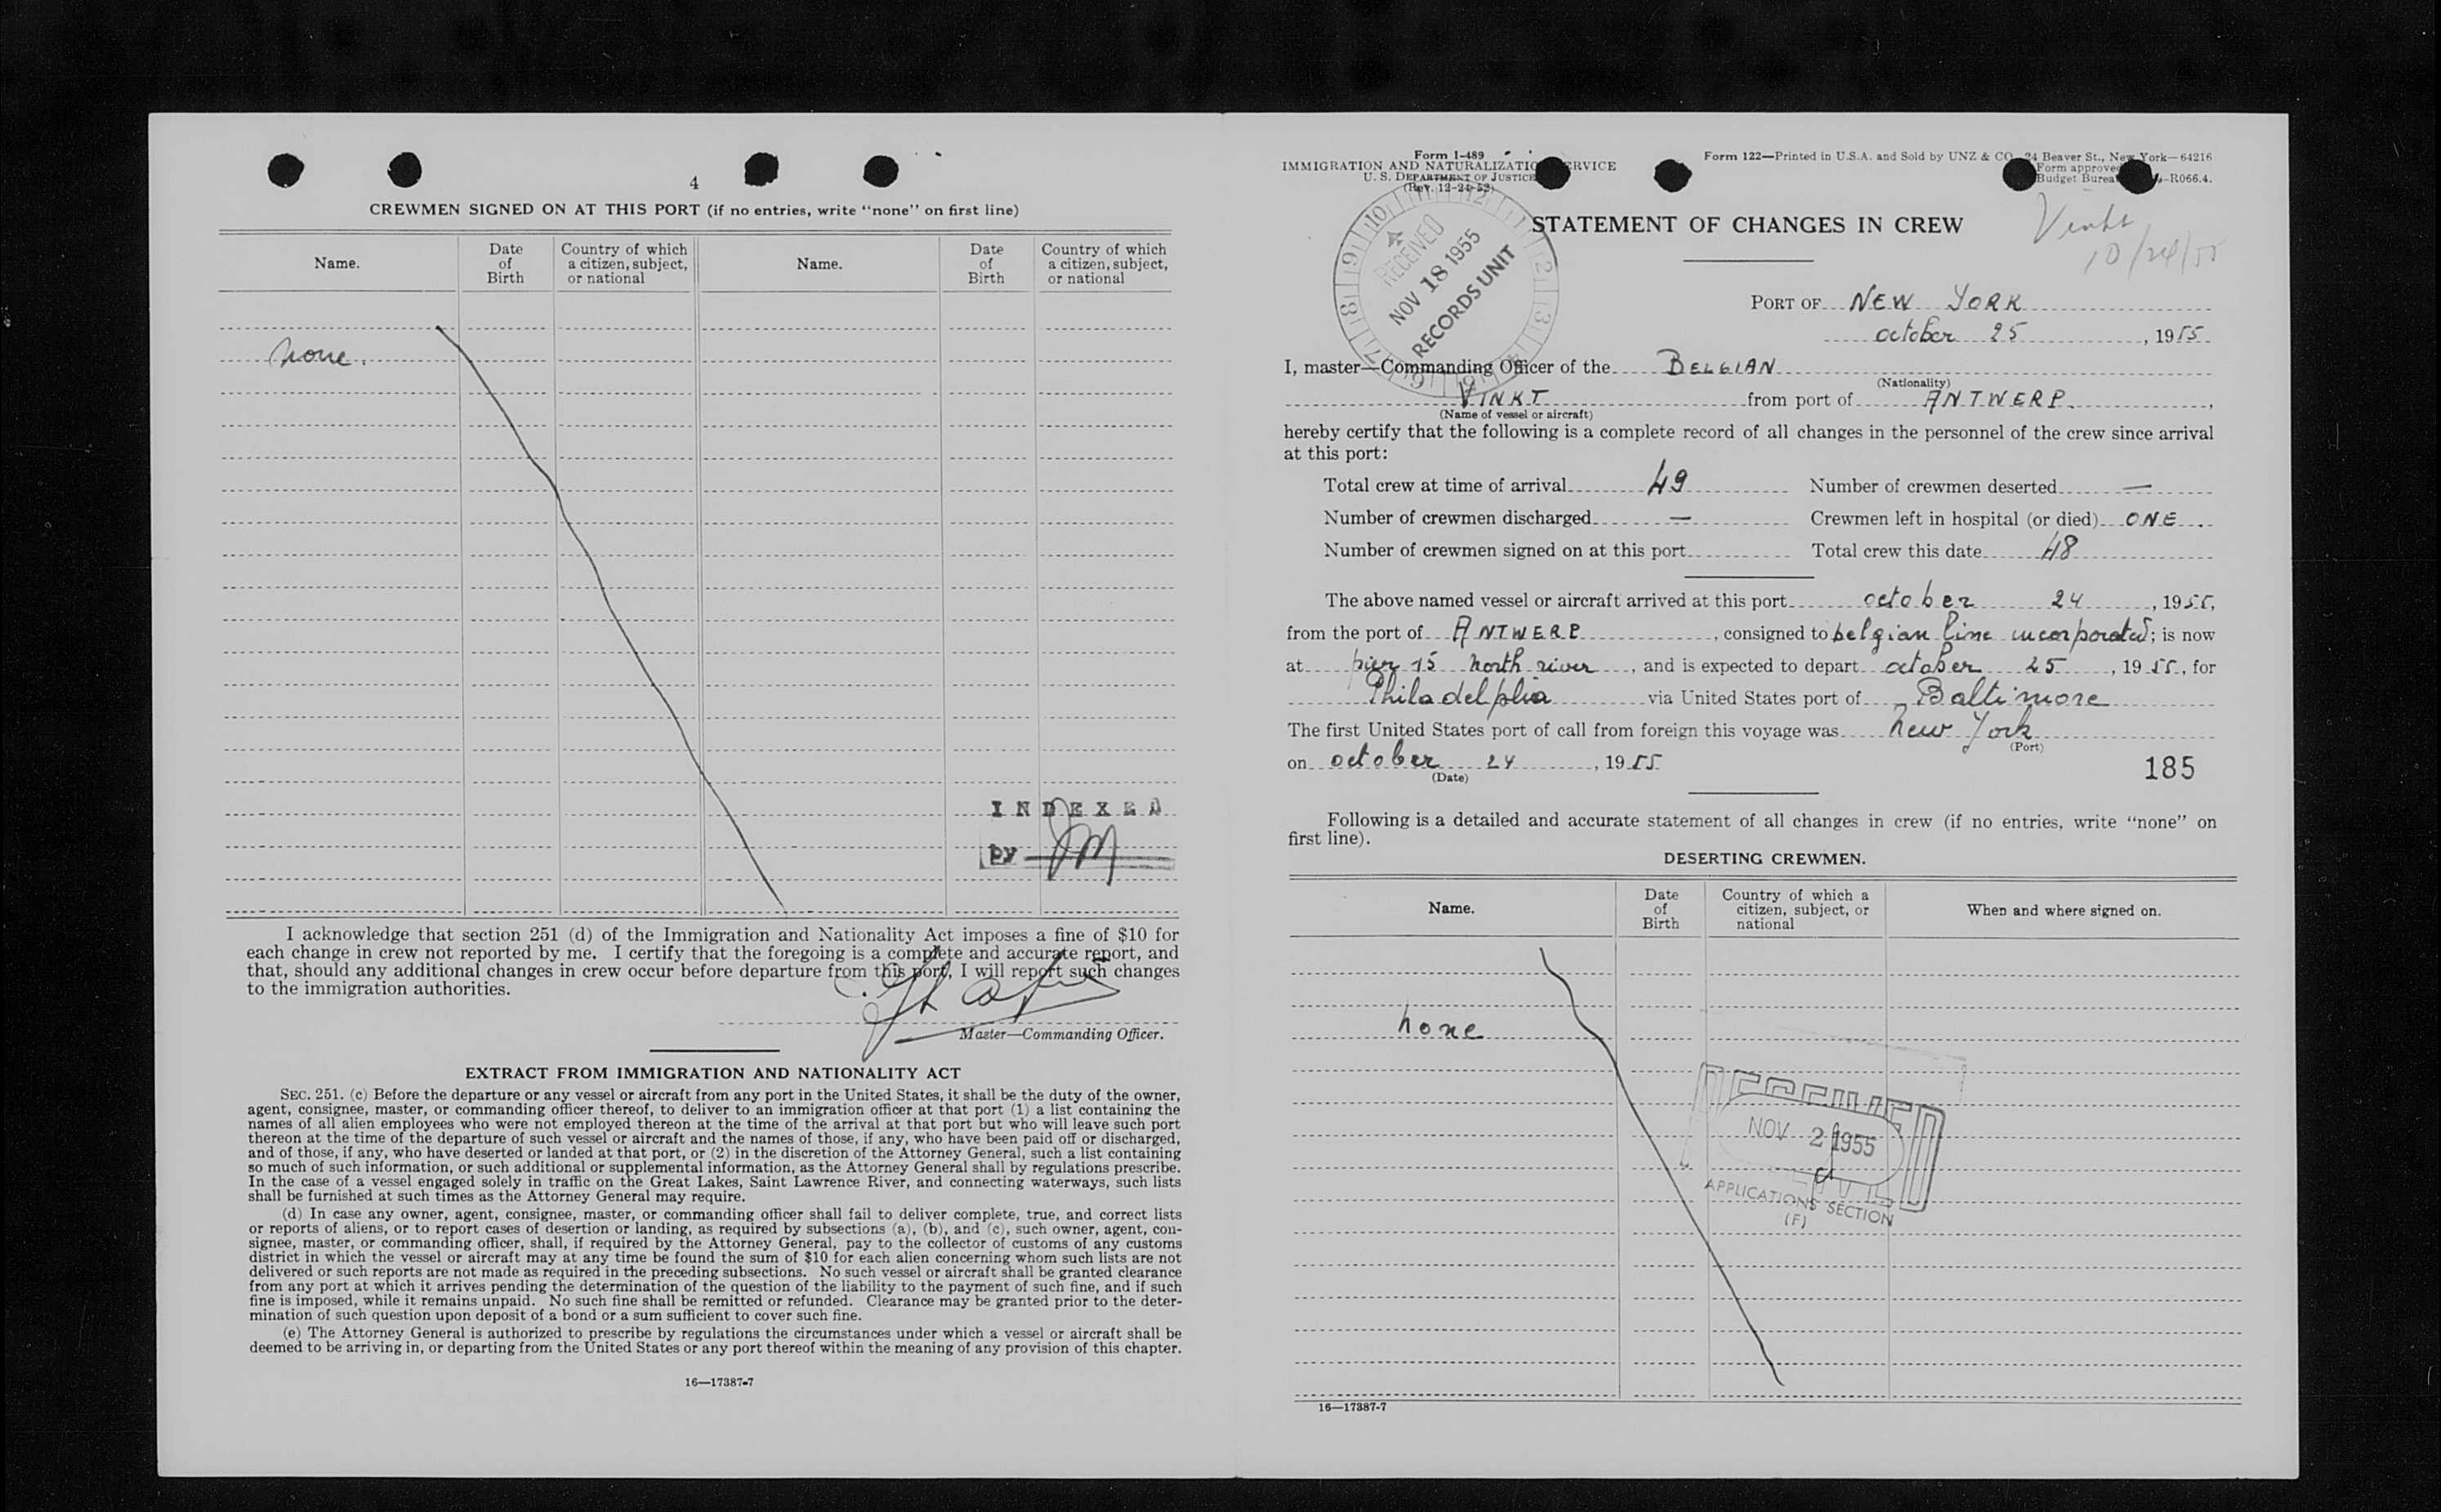 4
CREWMEN SIGNED ON AT THIS PORT (if no entries, write “none” on first line)
Name. Date of Birth Country of which a citizen, subject, or national Name. Date of Birth Country of which a citizen, subject, or national
none.
INDEXED
by JM
I acknowledge that section 251 (d) of the Immigration and Nationality Act imposes a fine of $10 for
each change in crew not reported by me. I certify that the foregoing is a complete and accurate report, and
that, should any additional changes in crew occur before departure from this port, I will report such changes
to the immigration authorities.
Master—Commanding Officer.
EXTRACT FROM IMMIGRATION AND NATIONALITY ACT
SEC. 251. (c) Before the departure or any vessel or aircraft from any port in the United States, it shall be the duty of the owner,
agent, consignee, master, or commanding officer thereof, to deliver to an immigration officer at that port (1) a list containing the
names of all alien employees who were not employed thereon at the time of the arrival at that port but who will leave such port
thereon at the time of the departure of such vessel or aircraft and the names of those, if any, who have been paid off or discharged,
and of those, if any, who have deserted or landed at that port, or (2) in the discretion of the Attorney General, such a list containing
so much of such information, or such additional or supplemental information, as the Attorney General shall by regulations prescribe.
In the case of a vessel engaged solely in traffic on the Great Lakes, Saint Lawrence River, and connecting waterways, such lists
shall be furnished at such times as the Attorney General may require.
(d) In case any owner, agent, consignee, master, or commanding officer shall fail to deliver complete, true, and correct lists
or reports of aliens, or to report cases of desertion or landing, as required by subsections (a), (b), and (c), such owner, agent, con-
signee, master, or commanding officer, shall, if required by the Attorney General, pay to the collector of customs of any customs
district in which the vessel or aircraft may at any time be found the sum of $10 for each alien concerning whom such lists are not
delivered or such reports are not made as required in the preceding subsections. No such vessel or aircraft shall be granted clearance
from any port at which it arrives pending the determination of the question of the liability to the payment of such fine, and if such
fine is imposed, while it remains unpaid. No such fine shall be remitted or refunded. Clearance may be granted prior to the deter-
mination of such question upon deposit of a bond or a sum sufficient to cover such fine.
(e) The Attorney General is authorized to prescribe by regulations the circumstances under which a vessel or aircraft shall be
deemed to be arriving in, or departing from the United States or any port thereof within the meaning of any provision of this chapter.
16—17387-7
Form I-489
IMMIGRATION AND NATURALIZATION SERVICE
U. S. DEPARTMENT OF JUSTICE
(Rev. 12-24-52)
Form 122—Printed in U.S.A. and Sold by UNZ & CO. 24 Beaver St., New York—64216
Form approved
Budget Bureau -R066.4.
RECEIVED
NOV 18 1955
RECORDS UNIT
STATEMENT OF CHANGES IN CREW
Vinkt
10/24/55
PORT OF NEW YORK
october 25, 1955
I, master—Commanding Officer of the BELGIAN
(Nationality)
VINKT from port of ANTWERP.,
(Name of vessel or aircraft)
hereby certify that the following is a complete record of all changes in the personnel of the crew since arrival
at this port:
Total crew at time of arrival 49 Number of crewmen deserted —
Number of crewmen discharged — Crewmen left in hospital (or died) ONE
Number of crewmen signed on at this port Total crew this date 48
The above named vessel or aircraft arrived at this port october 24, 1955,
from the port of ANTWERP, consigned to belgian line incorporated; is now
at pier 15 north river, and is expected to depart october 25, 1955, for
Philadelphia via United States port of Baltimore
The first United States port of call from foreign this voyage was new York
(Port)
on october 24, 1955
(Date)
185
Following is a detailed and accurate statement of all changes in crew (if no entries, write “none” on
first line).
DESERTING CREWMEN.
Name. Date of Birth Country of which a citizen, subject, or national When and where signed on.
none
RECEIVED
NOV 2 1955
APPLICATIONS SECTION
(F)
16—17387-7